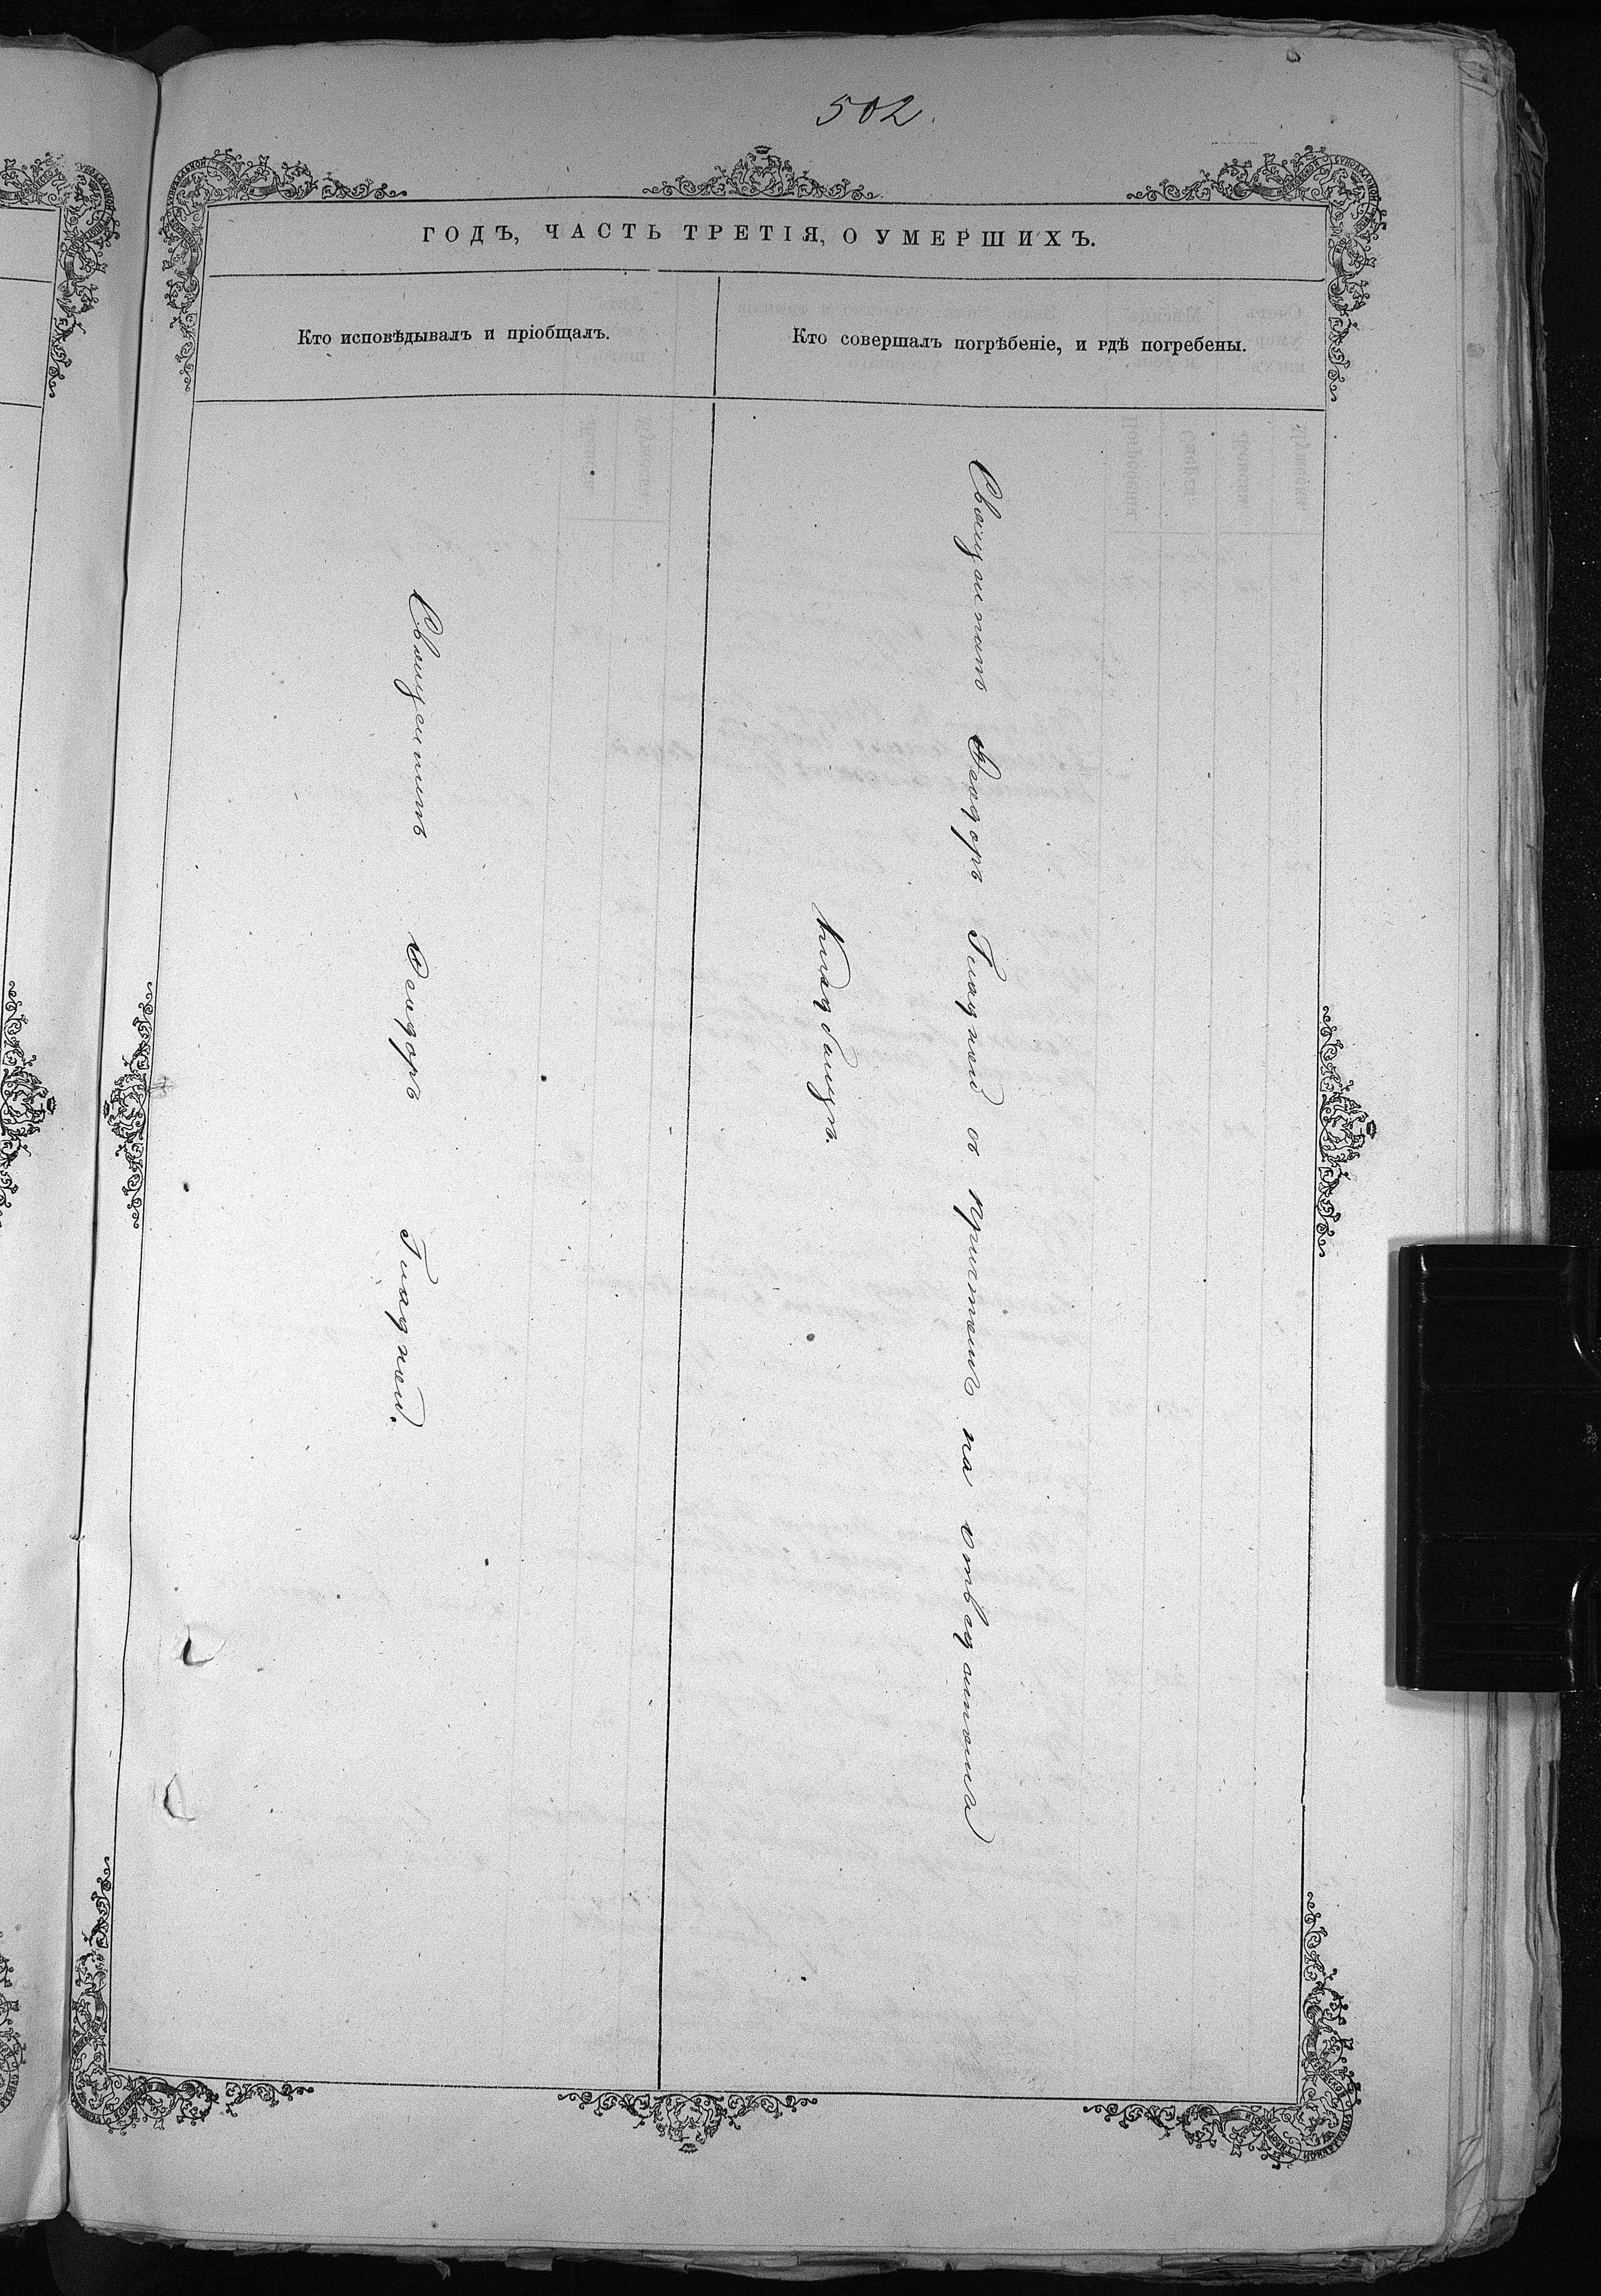 502.
ГОДЪ, ЧАСТЬ ТРЕТІЯ, О УМЕРШИХЪ.
Кто исповѣдывалъ и пріобщалъ.
Кто совершалъ погрѣбеніе, и гдѣ погребены.
Священникъ Ѳеодоръ Гладкой.
Священникъ Ѳеодоръ Гладкой съ причтомъ на
кладбищѣ.